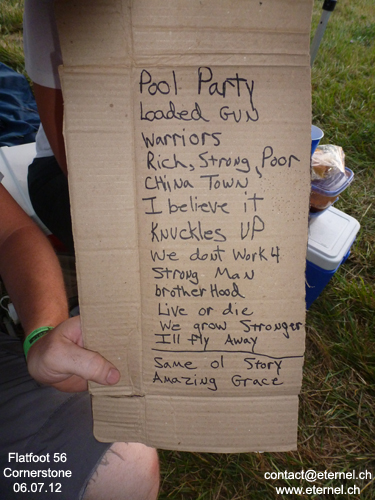 Pool Party
Loaded GUN
Warriors
Rich, Strong, Poor
China Town
I believe it
Knuckles UP
We dont Work 4
Strong Man
brotherHood
Live or die
We grow Stronger
Ill fly Away
Same ol Story
Amazing Grace
Flatfoot 56
Cornerstone
06.07.12
contact@eternel.ch
www.eternel.ch